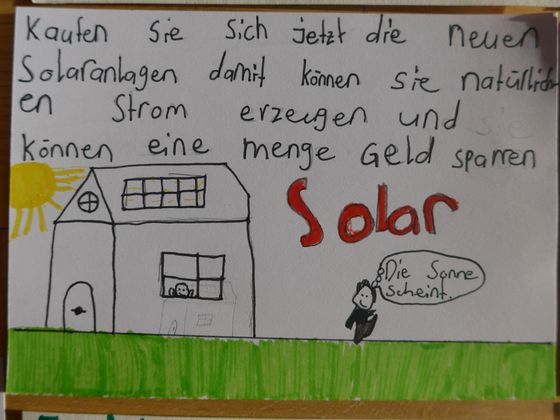 Kaufen Sie sich jetzt die neuen
Solaranlagen damit können sie natürlich
en Strom erzeugen und sie
können eine menge Geld sparren
Solar
Die Sonne
scheint.